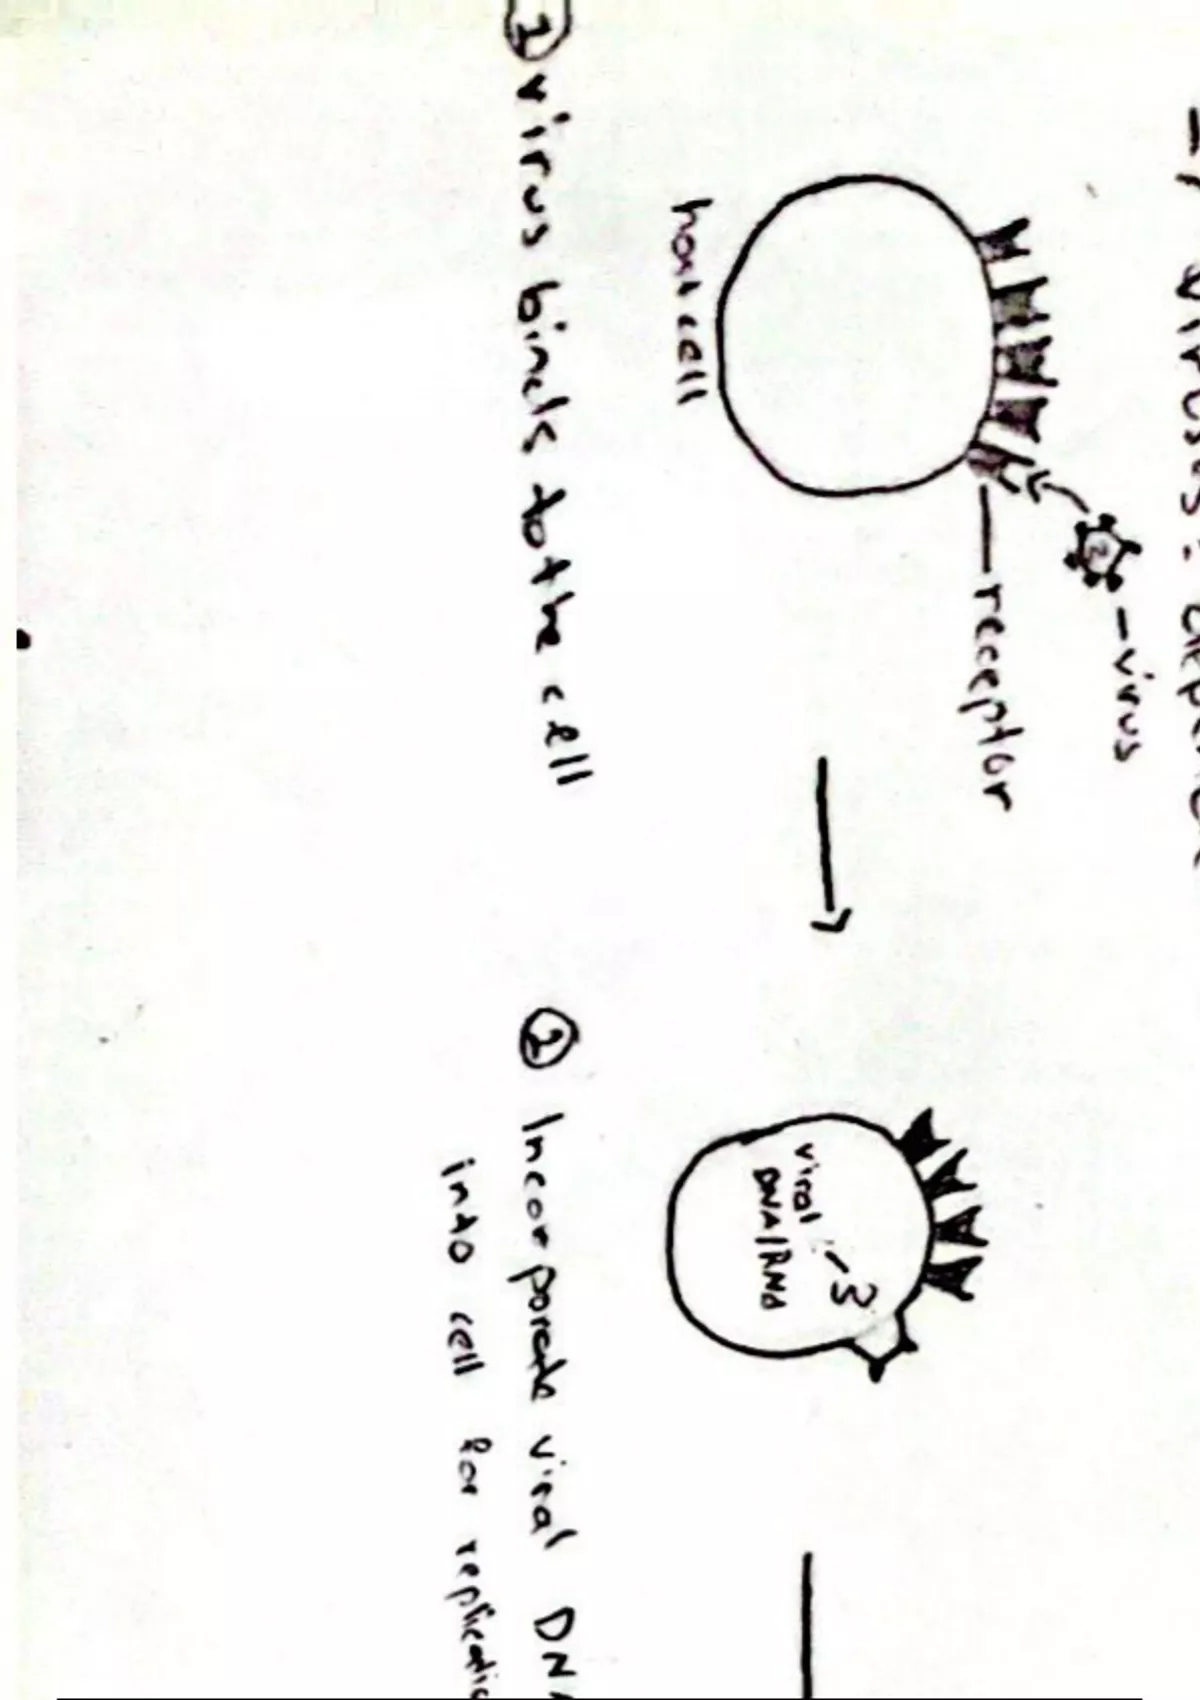 viruses:
virus
receptor
host cell
viral
DNA/RNA
① virus binds to the cell
② Incorporate viral DN
into cell for replicatio